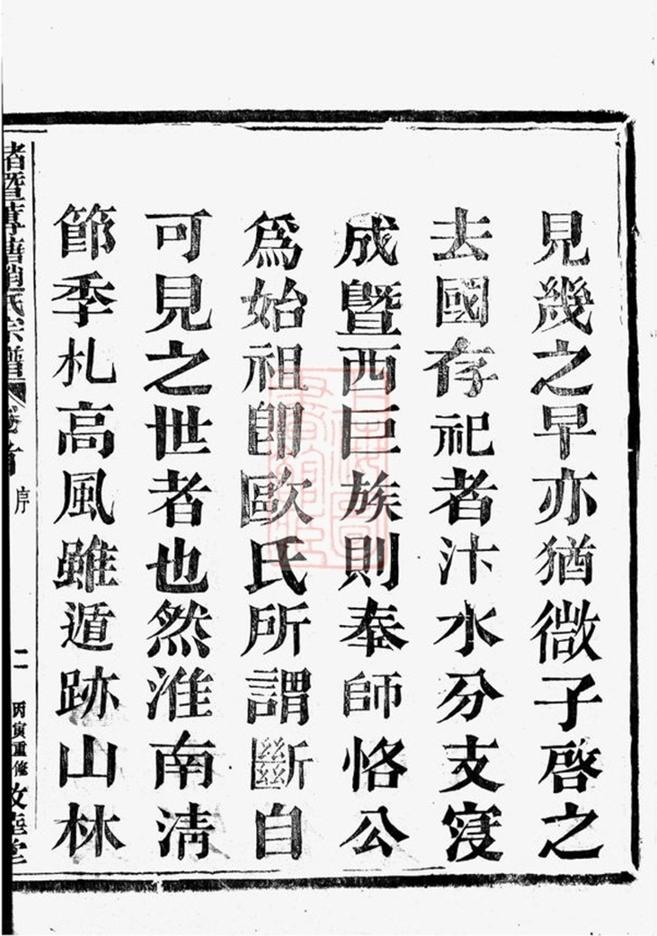 見幾之早亦猶微子啓之
去國存祀者汴水分支寖
成暨西巨族則奉師恪公
爲始祖卽歐氏所謂斷自
可見之世者也然淮南清
節季札高風雖遁跡山林
諸暨蓴塘趙氏宗譜 卷首 序 二 丙寅重修